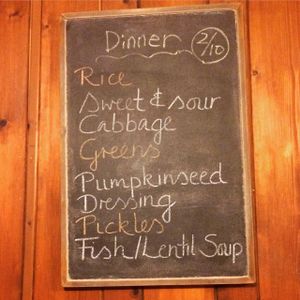 Dinner 2/10
Rice
Sweet & sour
Cabbage
Greens
Pumpkinseed
Dressing
Pickles
Fish/Lentil Soup